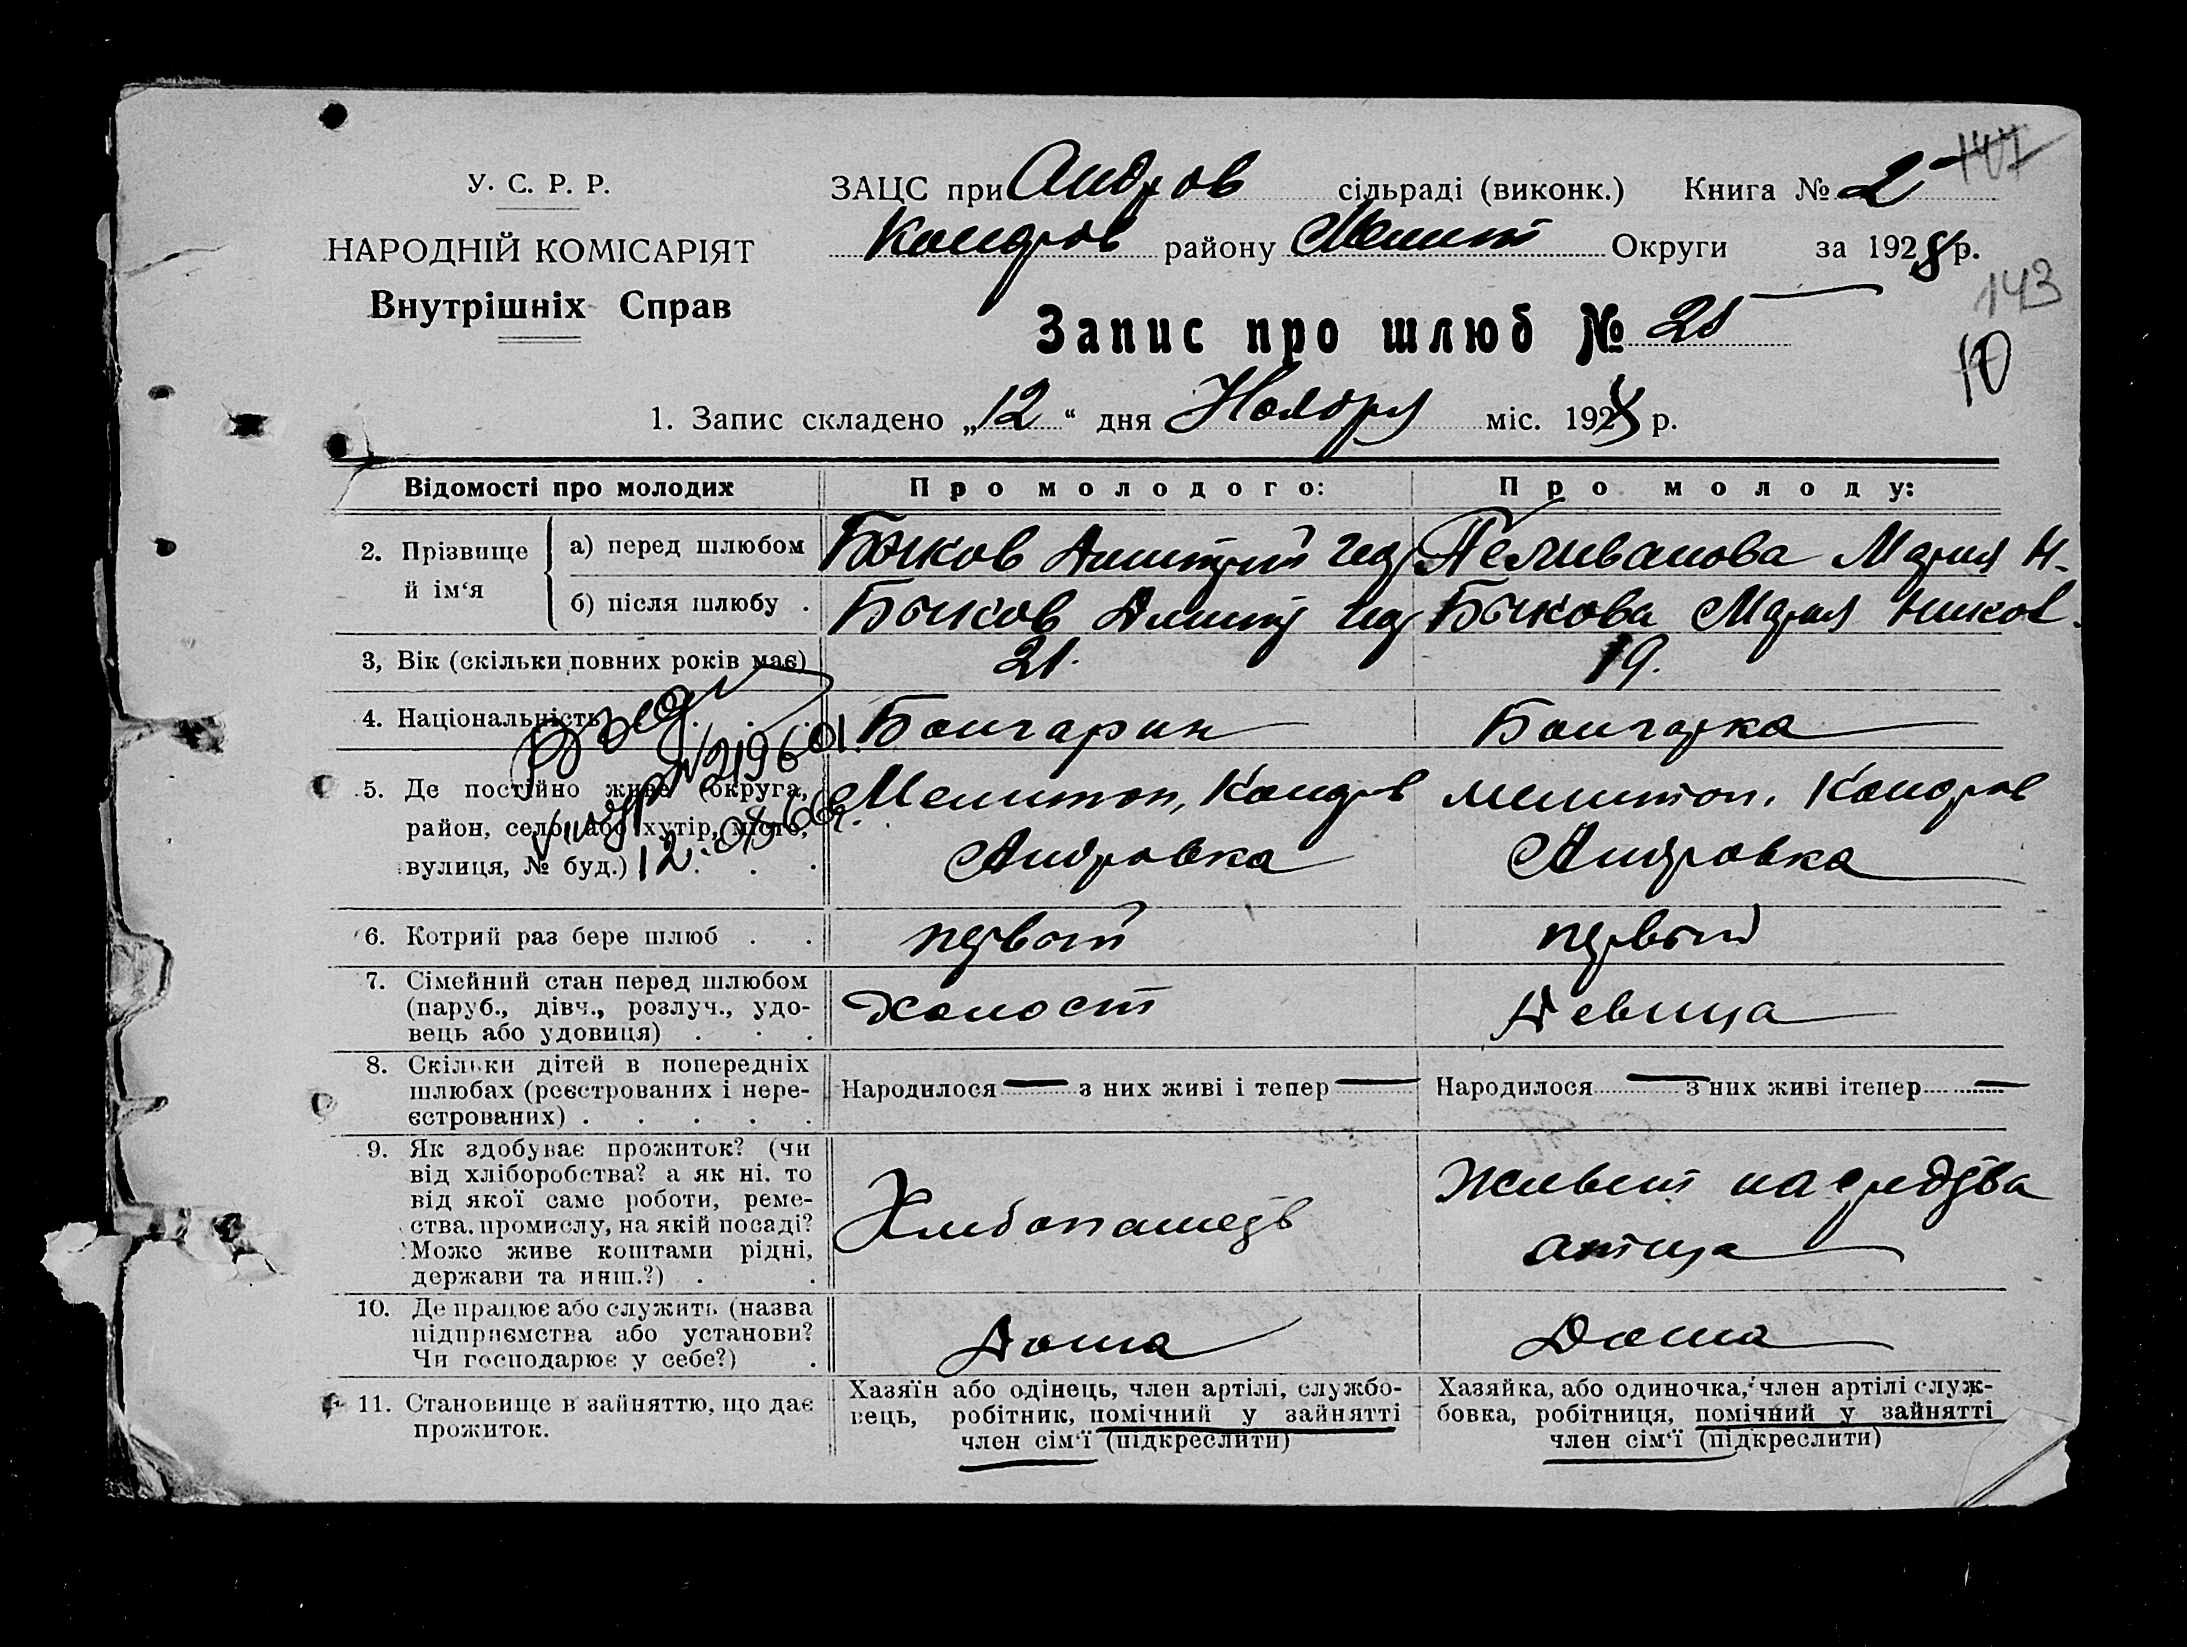 147
У. С. Р. Р.
НАРОДНІЙ КОМІСАРІЯТ
Внутрішніх Справ
ЗАЦС при Андров сільраді (виконк.) Книга № 2
Кондров району Мелит Округи за 1928 р.
143
Запис про шлюб №
10
1. Запис складено „12“ дня Ноября міс. 1928 р.
Відомості про молодих Про молодого: Про молоду:
2. Прізвище й ім‘я
а) перед шлюбом Бычков Дмитрий Пеливанова Мария Н.
б) після шлюбу . Бычков Дмитр Бычкова Мария Никол.
3, Вік (скільки повних років має) 21. 19.
4. Національність . . . Болгарин Болгарка
№ 219601.
5. Де постійно живе (округа, район, село, або хутір, місто, вулиця, № буд.) . .
Мелитоп, Кондров
Андровка
Мелитоп. Кондров
Андровка
12.
6. Котрий раз бере шлюб . . первой первый
7. Сімейний стан перед шлюбом (паруб., дівч., розлуч., удовець або удовиця) . . . холост Девица
8. Скільки дітей в попередніх шлюбах (реєстрованих і нереєстрованих) . . . . .
Народилося — з них живі і тепер —
Народилося — з них живі ітепер —
9. Як здобуває прожиток? (чи
від хліборобства? а як ні. то
від якої саме роботи, ремества. промислу, на якій посаді?
Може живе коштами рідні,
держави та инш.?) . .
Хлибопашедь
Живет на средства
отица
10. Де працює або служить (назва
підприємства або установи?
Чи господарює у себе?) .
Дома
Дома
11. Становище в зайняттю, що дає
прожиток.
Хазяїн або одінець, член артілі, службовець, робітник, помічний у зайнятті
член сім‘ї (підкреслити)
Хазяйка, або одиночка, член артілі службовка, робітниця, помічний у зайнятті
член сім‘ї (підкреслити)